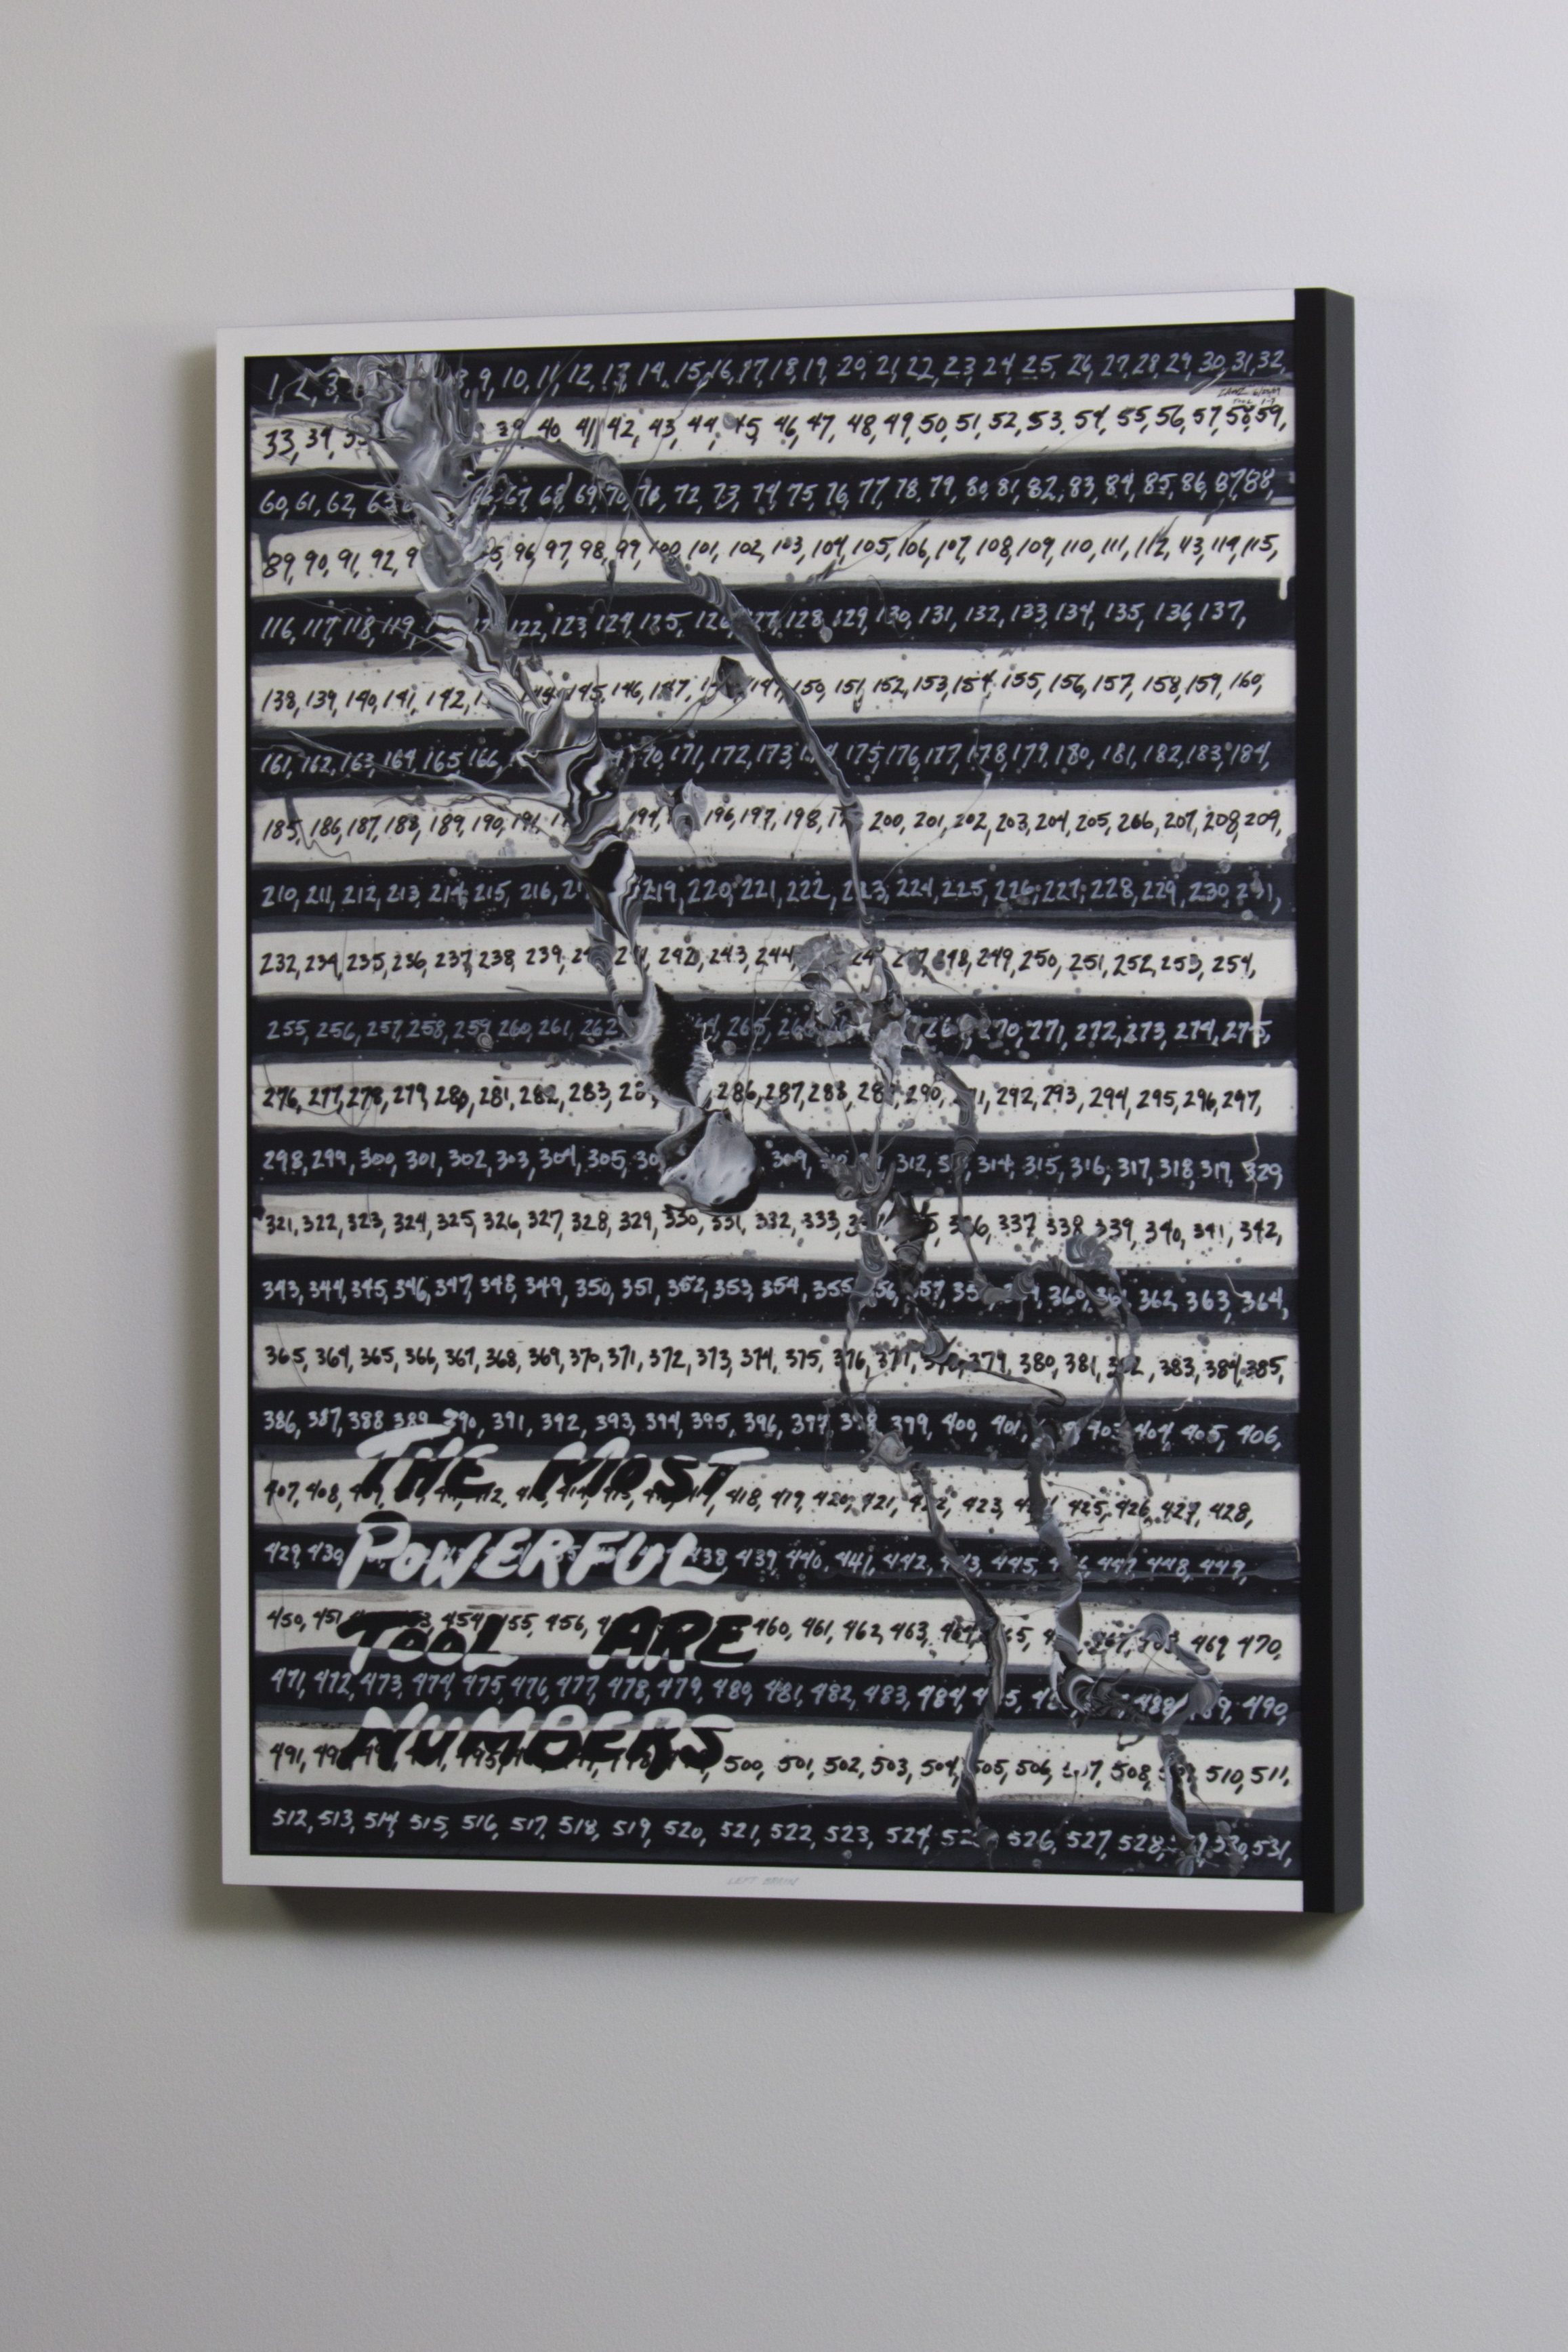 1, 2, 3 9, 10, 11, 12, 13, 14, 15, 16, 17, 18, 19, 20, 21, 22, 23, 24, 25, 26, 27, 28, 29, 30, 31, 32,
33, 34, 39, 40, 41, 42, 43, 44, 45, 46, 47, 48, 49, 50, 51, 52, 53, 54, 55, 56, 57, 58, 59,
60, 61, 62, 63 67, 68, 69, 70, 71, 72, 73, 74, 75, 76, 77, 78, 79, 80, 81, 82, 83, 84, 85, 86, 87, 88,
89, 90, 91, 92, 96, 97, 98, 99, 100, 101, 102, 103, 104, 105, 106, 107, 108, 109, 110, 111, 112, 113, 114, 115,
116, 117, 118, 119, 122, 123, 124, 125, 126, 127, 128, 129, 130, 131, 132, 133, 134, 135, 136, 137,
138, 139, 140, 141, 142, 144, 145, 146, 147, 149, 150, 151, 152, 153, 154, 155, 156, 157, 158, 159, 160,
161, 162, 163, 164, 165, 166 171, 172, 173, 175, 176, 177, 178, 179, 180, 181, 182, 183, 184,
185, 186, 187, 188, 189, 190, 191, 194, 196, 197, 198, 200, 201, 202, 203, 204, 205, 206, 207, 208, 209,
210, 211, 212, 213, 214, 215, 216, 219, 220, 221, 222, 223, 224, 225, 226, 227, 228, 229, 230, 231,
232, 234, 235, 236, 237, 238, 239, 242, 243, 244, 248, 249, 250, 251, 252, 253, 254,
255, 256, 257, 258, 259, 260, 261, 262 265, 270, 271, 272, 273, 274, 275,
276, 277, 278, 279, 280, 281, 282, 283, 286, 287, 288, 289, 290, 292, 293, 294, 295, 296, 297,
298, 299, 300, 301, 302, 303, 304, 305, 309, 312, 314, 315, 316, 317, 318, 319, 329
321, 322, 323, 324, 325, 326, 327, 328, 329, 330, 331, 332, 333, 336, 337 338, 339, 340, 341, 342,
343, 344, 345, 346, 347, 348, 349, 350, 351, 352, 353, 354, 355 360, 361, 362, 363, 364,
365, 364, 365, 366, 367, 368, 369, 370, 371, 372, 373, 374, 375, 376, 377, 378, 379, 380, 381, 382, 383, 384, 385,
386, 387, 388 389 390, 391, 392, 393, 394, 395, 396, 397 398, 399, 400, 401, 403, 404, 405, 406,
THE MOST
407, 408, 418, 419, 420, 421, 422, 423, 424 425, 426, 427, 428,
POWERFUL
429, 430, 438 439, 440, 441, 442, 443, 445, 446, 447, 448, 449,
450, 451 454, 455, 456, 460, 461, 462, 463, 464, 467, 468 469 470,
TOOL ARE
471, 472, 473, 474, 475, 476, 477, 478, 479, 480, 481, 482, 483, 484, 488, 490,
NUMBERS
491, 500, 501, 502, 503, 504, 505, 506, 507, 508, 510, 511,
512, 513, 514, 515, 516, 517, 518, 519, 520, 521, 522, 523, 524, 526, 527, 528, 530, 531,
LEFT BRAIN